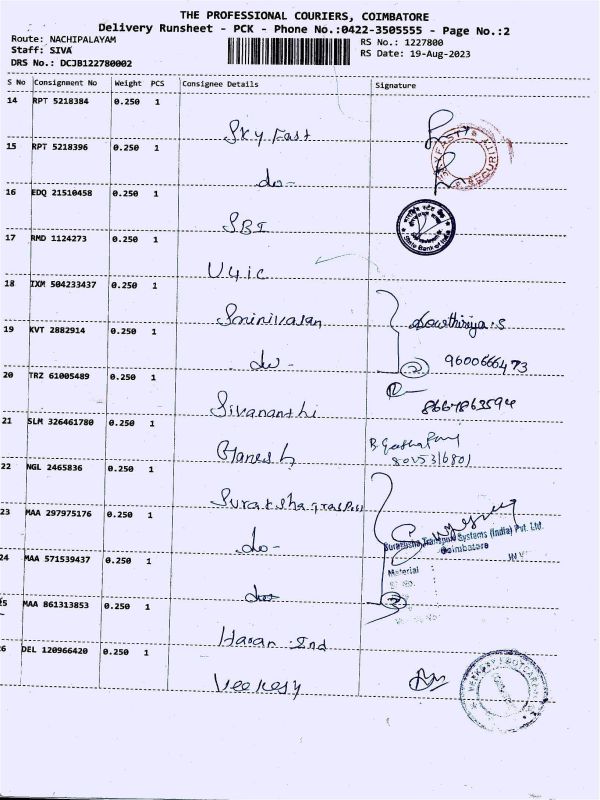 THE PROFESSIONAL COURIERS, COIMBATORE
Delivery Runsheet - PCK - Phone No.:0422-3505555 - Page No.:2
Route: NACHIPALAYAM RS No.: 1227800
Staff: SIVA RS Date: 19-Aug-2023
DRS No.: DCJB122780002
S No Consignment No Weight PCS Consignee Details Signature
14 RPT 5218384 0.250 1
Sky Fast
15 RPT 5218396 0.250 1
do-
16 EDQ 21510458 0.250 1
SBI
State Bank of India
17 RMD 1124273 0.250 1
U4ic
18 IXM 504233437 0.250 1
Srinivasan
19 KVT 2882914 0.250 1
do- 2 9600666473
20 TRZ 61005489 0.250 1
Sivananthi 8667863594
21 SLM 326461780 0.250 1
Ganesh
22 NGL 2465836 0.250 1
23 MAA 297975176 0.250 1
do- Suraksha Transport Systems (India) Pvt. Ltd.
Coimbatore
24 MAA 571539437 0.250 1
Material :
do-
25 MAA 861313853 0.250 1
Hasan Ind
26 DEL 120966420 0.250 1
Veekesy